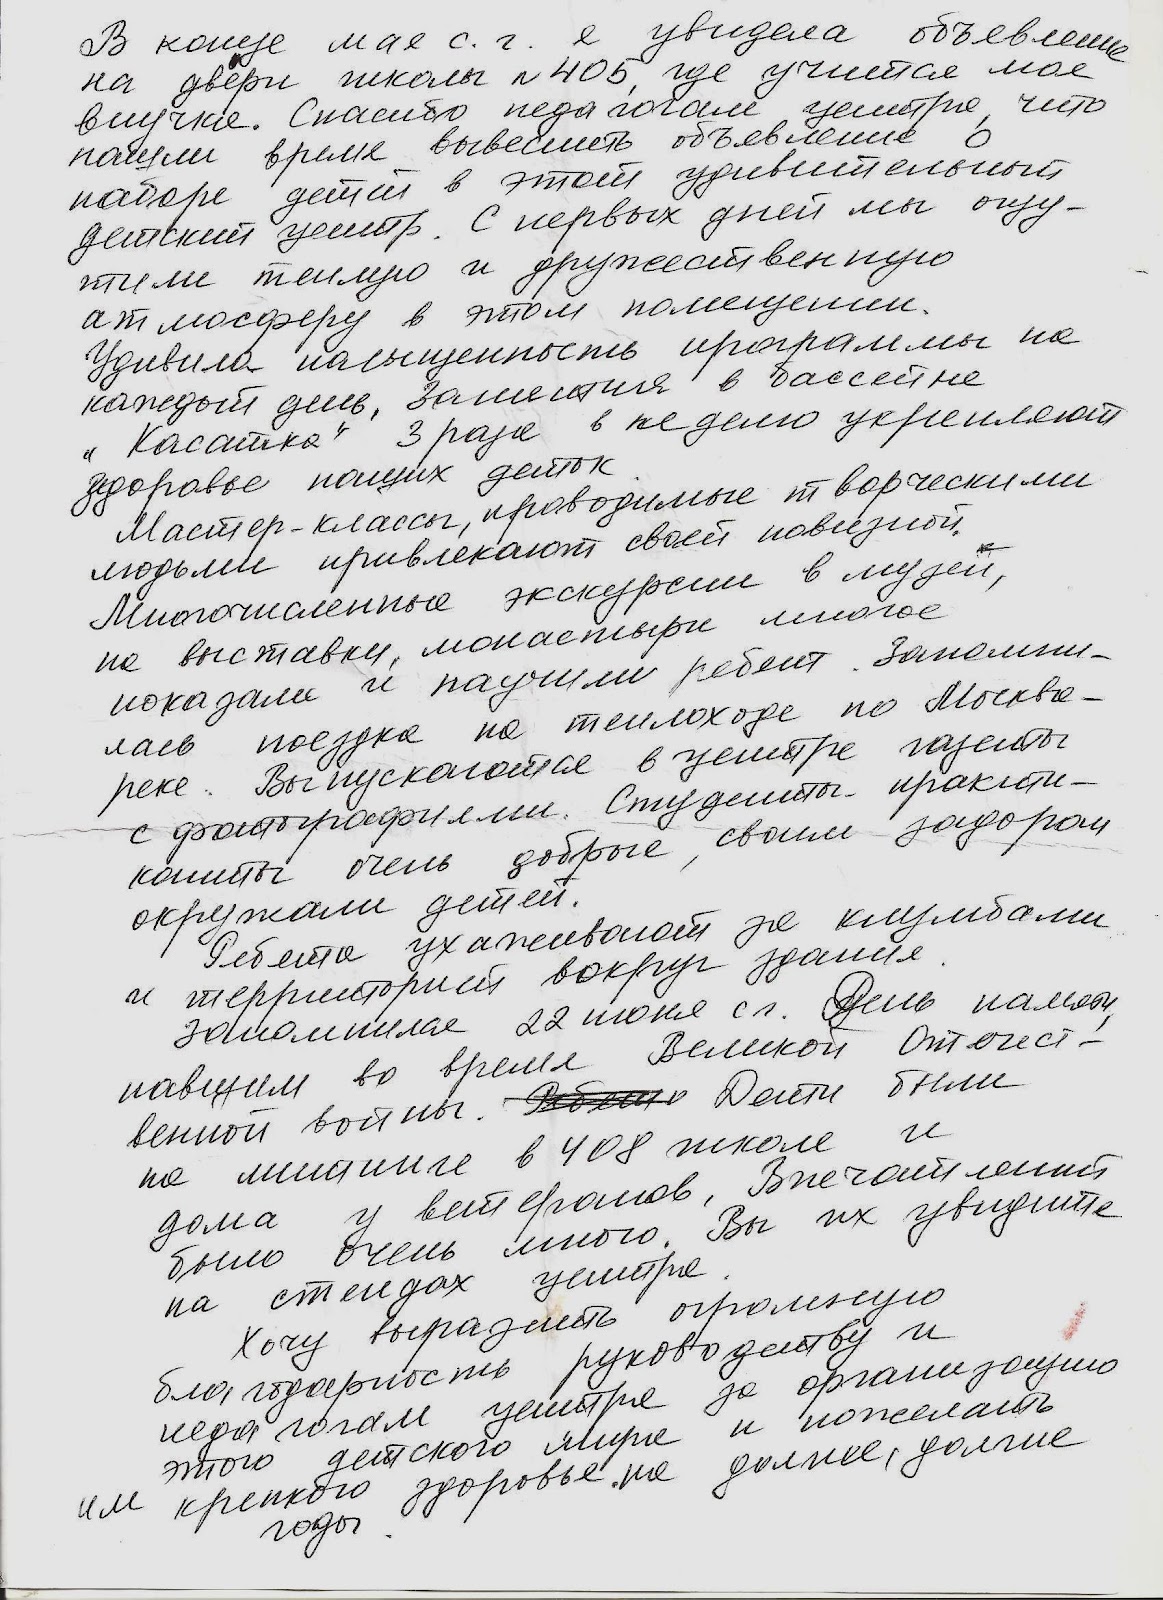 В конце мая с. г. я увидела объявление
на двери школы №405, где учится моя
внучка. Спасибо педагогам центра, что
нашли время вывесить объявление о
наборе детей в этот удивительный
детский центр. С первых дней мы ощу-
тили теплую и дружественную
атмосферу в этом помещении.
Удивила насыщенность программы на
каждый день. Занятия в бассейне
„Касатка" 3 раза в неделю укрепляют
здоровье наших деток
Мастер-классы, проводимые творческими
людьми привлекают своей новизной.
Многочисленные экскурсии в музей,
на выставки, монастыри многое
показали и научили ребят. Запомни-
лась поездка на теплоходе по Москва-
реке. Выпускаются в центре газеты
с фотографиями. Студенты-практи-
канты очень добрые, своим задором
окружали детей.
Ребята ухаживают за клумбами
и территорией вокруг здания.
Запомнился 22 июня с г. День памяти,
павшим во время Великой Отечест-
венной войны. Дети были
на митинге в 408 школе и
дома у ветеранов. Впечатлений
было очень много. Вы их увидите
на стендах центра.
Хочу выразить огромную
благодарность руководству и
педагогам центра за организацию
этого детского мира и пожелать
им крепкого здоровья на долгие, долгие
годы.